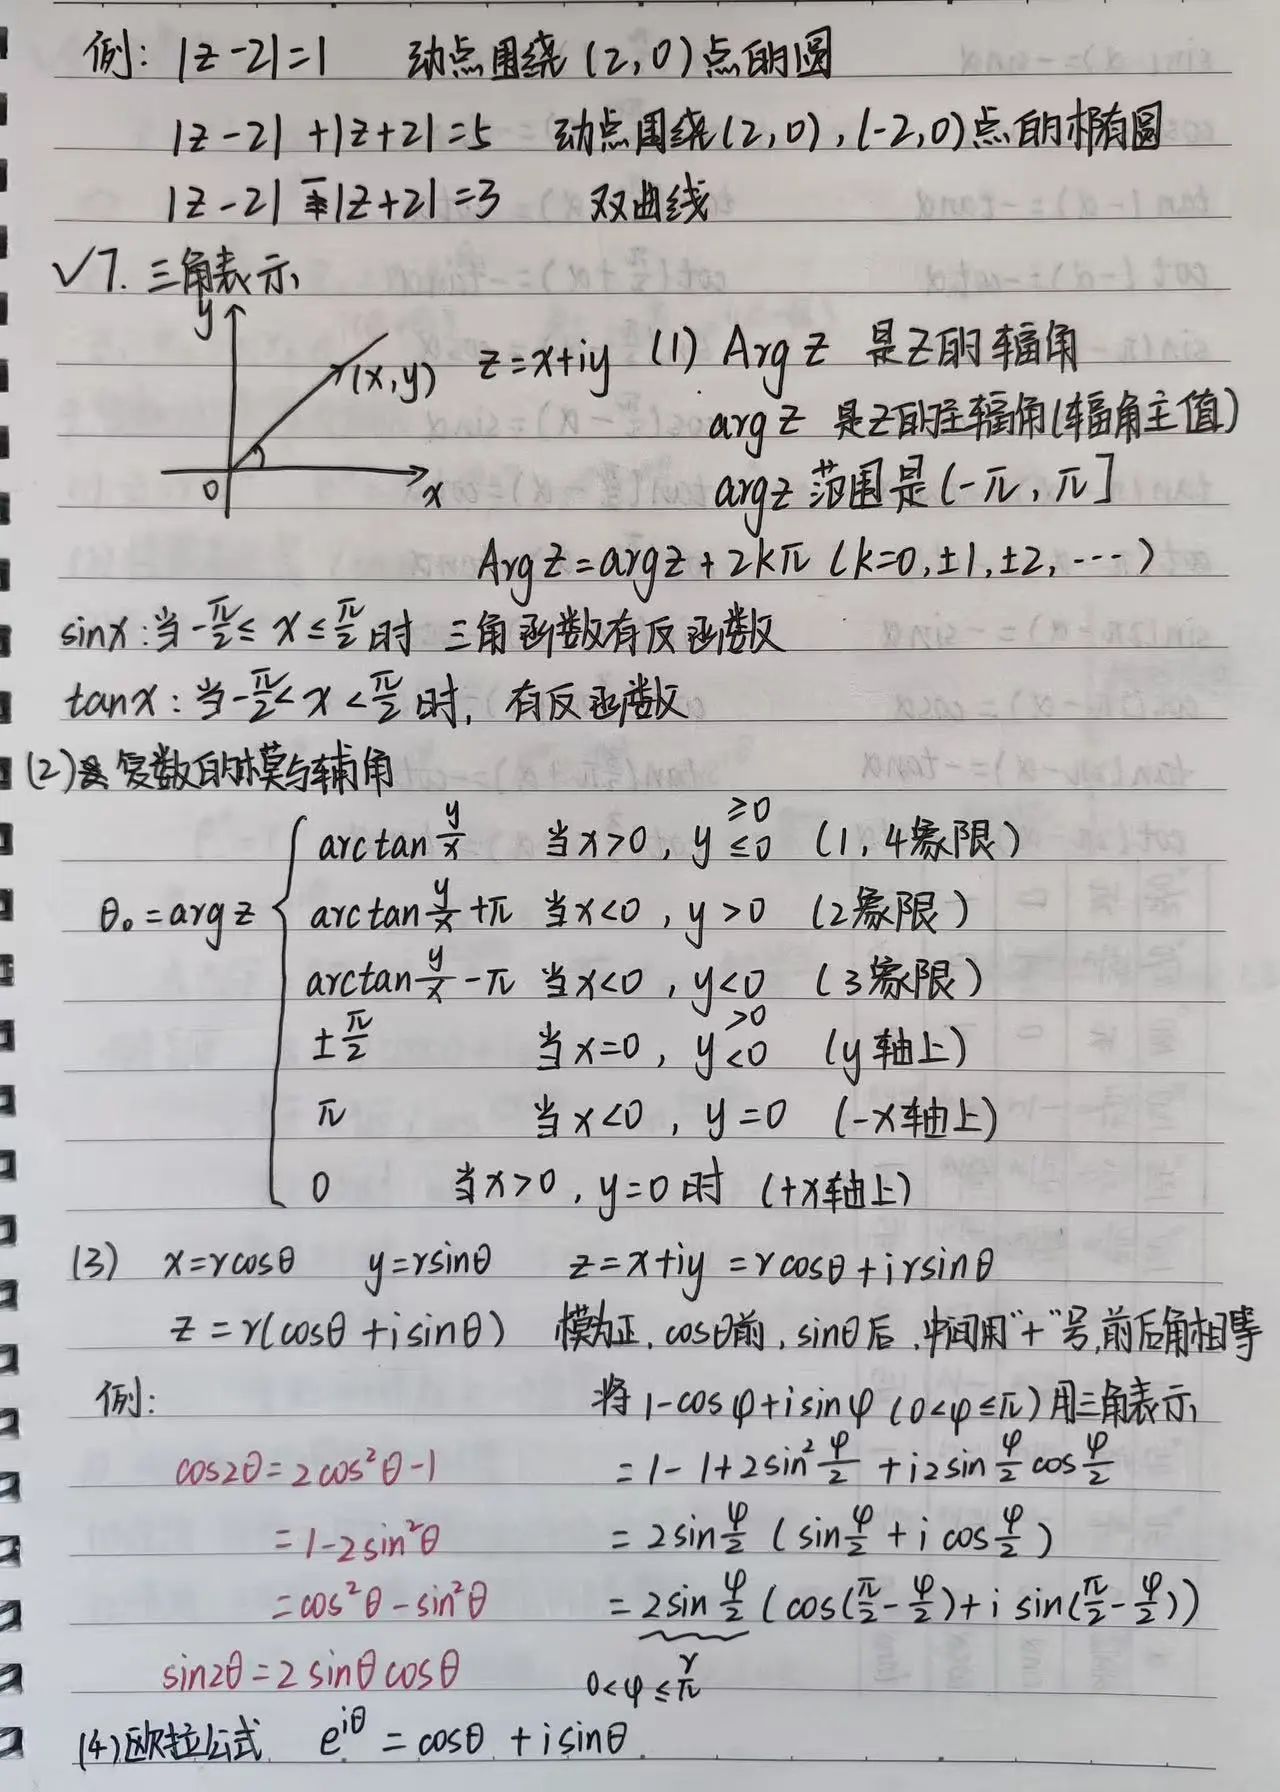 例: |z-2|=1 动点围绕(2,0)点的圆
|z-2|+|z+2|=5 动点围绕(2,0),(-2,0)点的椭圆
|z-2|-|z+2|=3 双曲线
√7. 三角表示
y
(x,y) z=x+iy (1) Arg z 是z的辐角
arg z 是z的主辐角(辐角主值)
0 x argz 范围是(-π,π]
Arg z=argz+2kπ (k=0,±1,±2,…)
sinx:当-π/2≤x≤π/2时 三角函数有反函数
tanx:当-π/2<x<π/2时, 有反函数
(2) 复数的模与辅角
θ₀=argz { arctan y/x 当x>0, y ≥0 ≤0 (1,4象限)
arctan y/x +π 当x<0, y>0 (2象限)
arctan y/x -π 当x<0, y<0 (3象限)
±π/2 当x=0, y >0 <0 (y轴上)
π 当x<0, y=0 (-x轴上)
0 当x>0, y=0时 (+x轴上)
(3) x=rcosθ y=rsinθ z=x+iy=rcosθ+irsinθ
z=r(cosθ+isinθ) 模为正, cosθ前, sinθ后, 中间用"+"号,前后角相等
例: 将1-cosφ+isinφ (0<φ≤π)用三角表示
cos2θ=2cos²θ-1 =1-1+2sin²φ/2+i2sinφ/2cosφ/2
=1-2sin²θ =2sinφ/2(sinφ/2+icosφ/2)
=cos²θ-sin²θ =2sinφ/2(cos(π/2-φ/2)+i sin(π/2-φ/2))
sin2θ=2sinθcosθ 0<φ≤π r
(4)欧拉公式 e^{iθ}=cosθ+isinθ